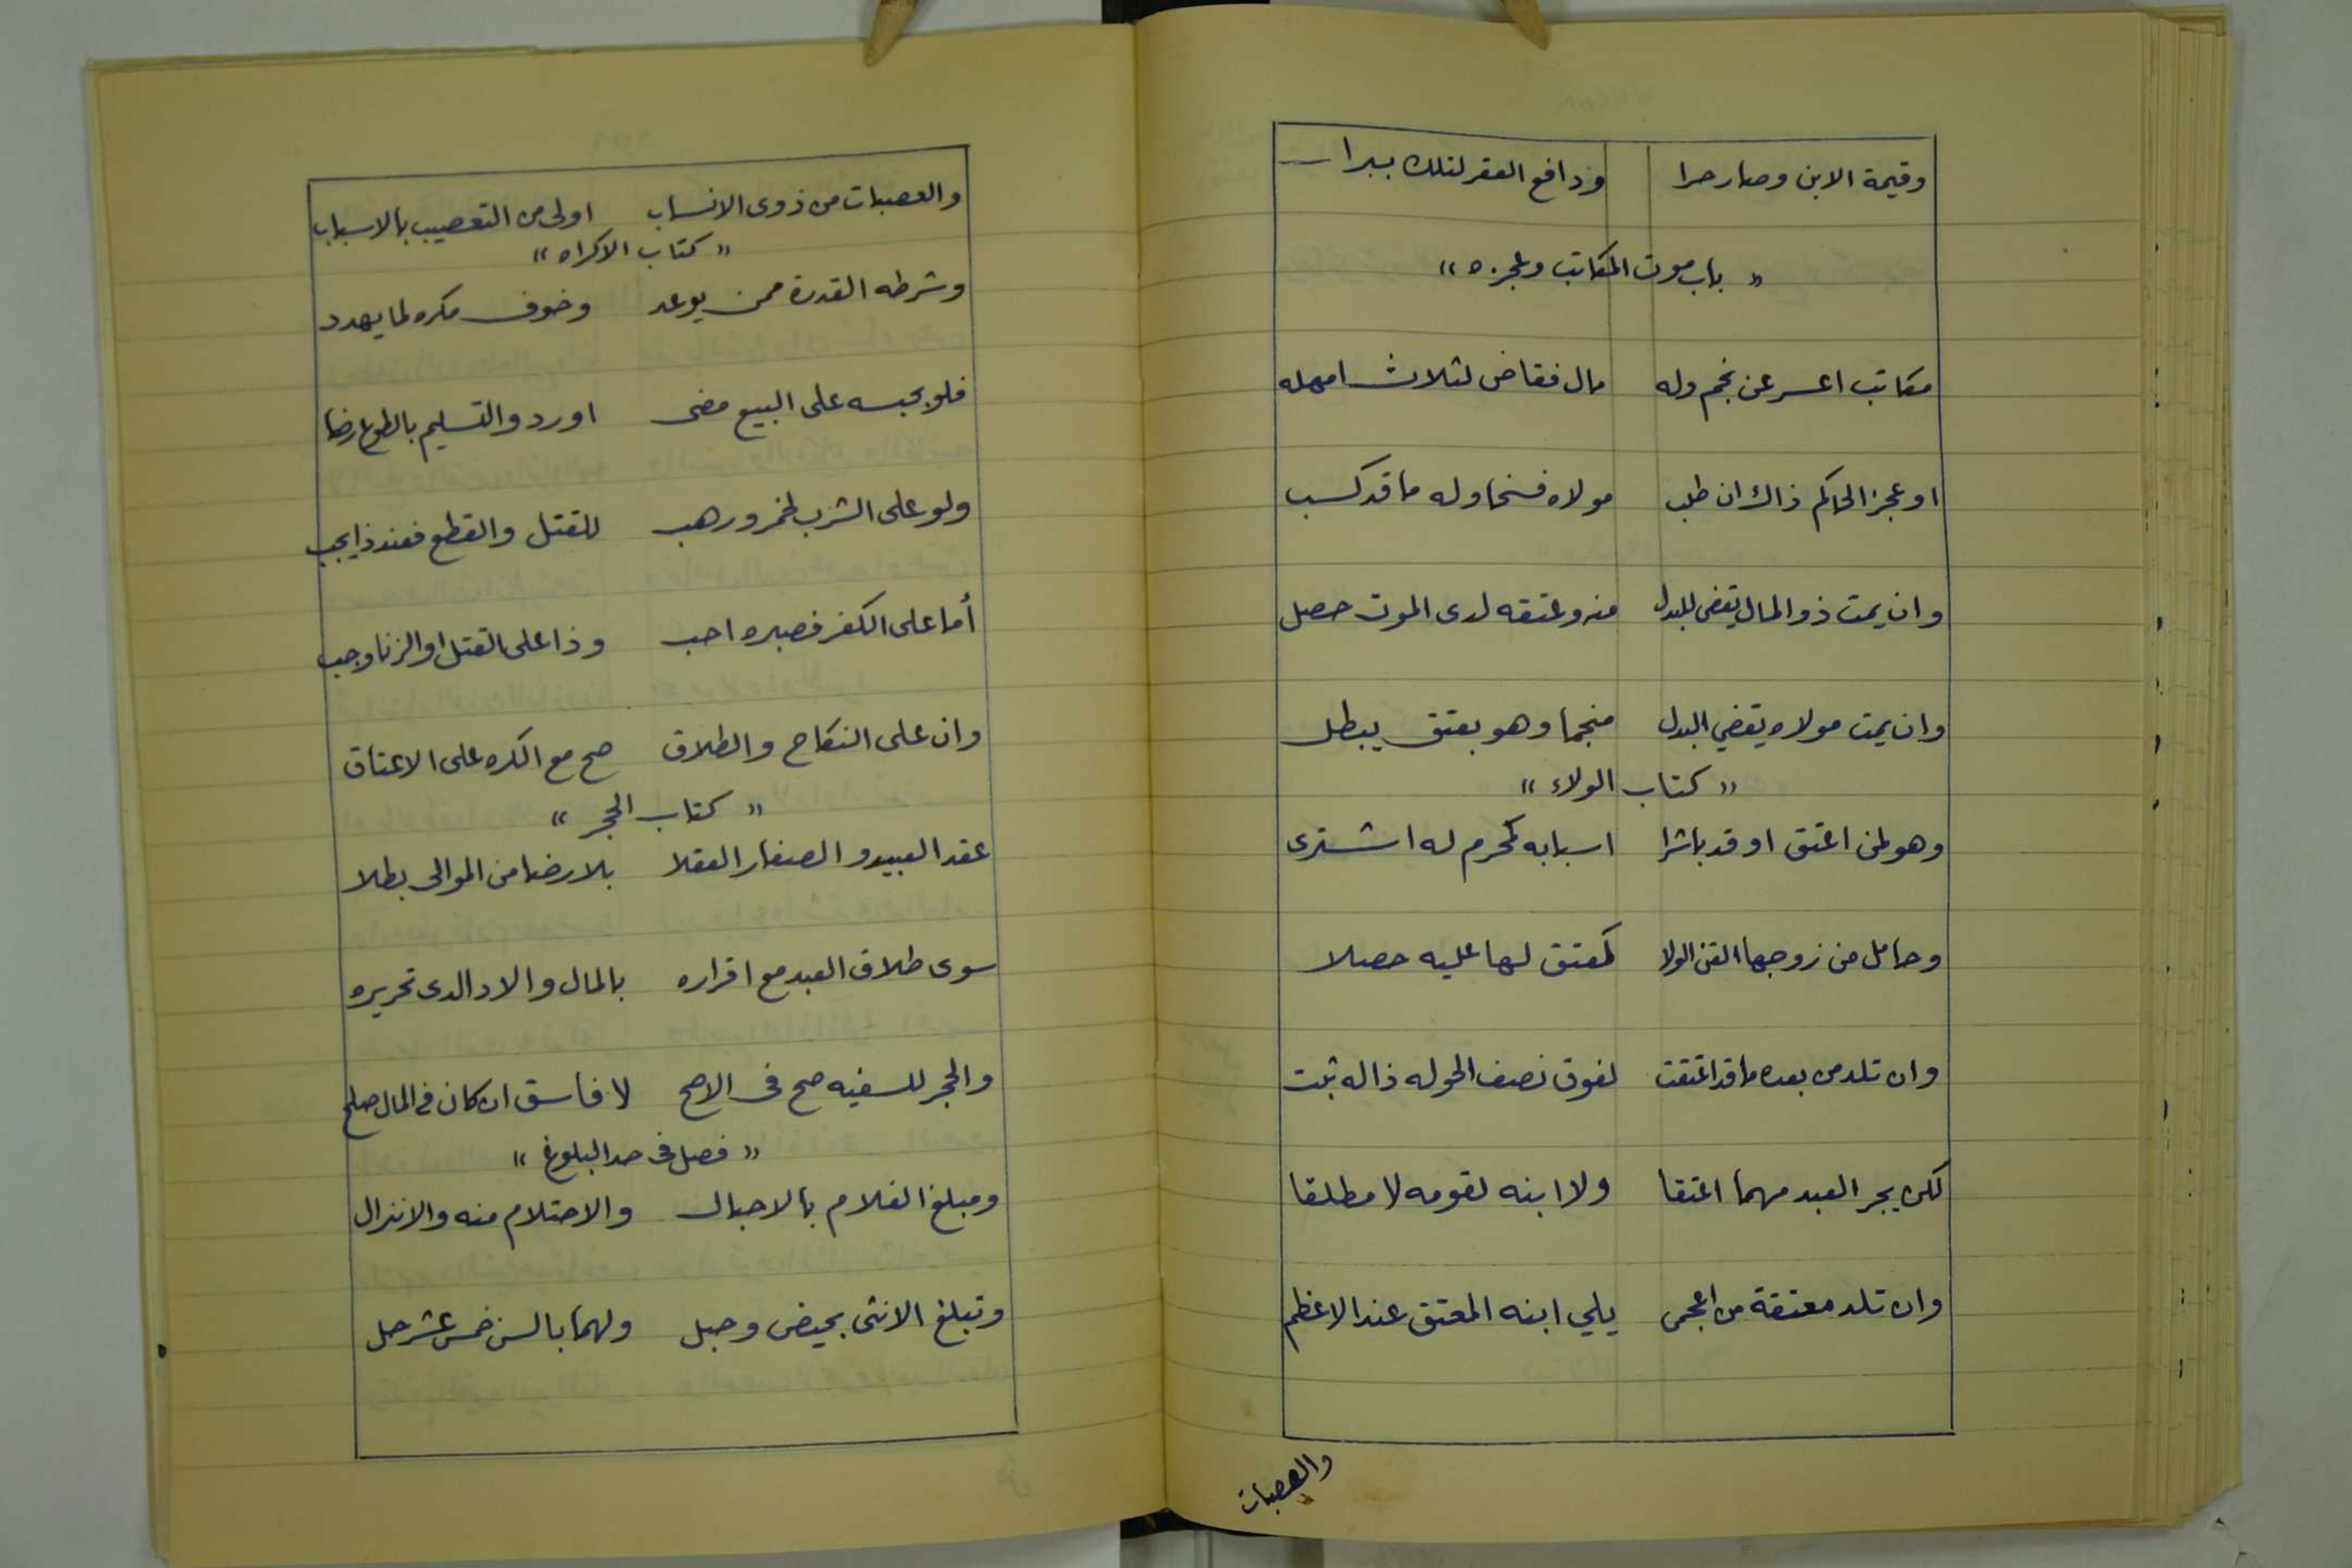 وقيمة الابن وصار حرا ودافع العقر لتلك يبرا
« باب موت المكاتب وعجزه »
مكاتب اعسر عن نجم وله مال فقاض لثلاث امهله
او عجز الحاكم ذاك ان طلب مولاه فسخا وله ما قد كسب
وان يمت ذو المال يقضى للبدل منه وعتقه لدى الموت حصل
وان يمت مولاه يقضي البدل منجما وهو بعتق يبطل
« كتاب الولاء »
وهو لمن اعتق او قد باشرا اسبابه كمحرم له اشترى
وحامل من زوجها القن الولا كمعتق لها عليه حصلا
وان تلد من بعده ما قد اعتقت لفوق نصف الحول ذا له ثبت
لكن يجر العبد مهما اعتقا ولا ابنه لقومه لا مطلقا
وان تلد معتقة من اعجمى يلي ابنه المعتق عند الاعظم
والعصبات
والعصبات من ذوى الانساب اولى من التعصيب بالاسباب
« كتاب الاكراه »
وشرطه القدرة ممن يوعد وخوف مكره لما يهدد
فلو بحبسه على البيع مضى او رد والتسليم بالطوع رضا
ولو على الشرب لخمر ورهب للقتل والقطع فعند ذا يجب
أما على الكفر فصبره احب وذا على القتل او الزنا وجب
وان على النكاح والطلاق صح مع الكره على الاعتاق
« كتاب الحجر »
عقد العبيد والصغار العقلا بلا رضا من الموالى بطلا
سوى طلاق العبد مع اقراره بالمال والاد الدى تحريره
والحجر للسفيه صح فى الاصح لا فاسق ان كان فى المال صلح
« فصل فى حد البلوغ »
ومبلغ الغلام بالاحبال والاحتلام منه والانزال
وتبلغ الانثى بحيض وحبل ولهما بالسن خمس عشر حل